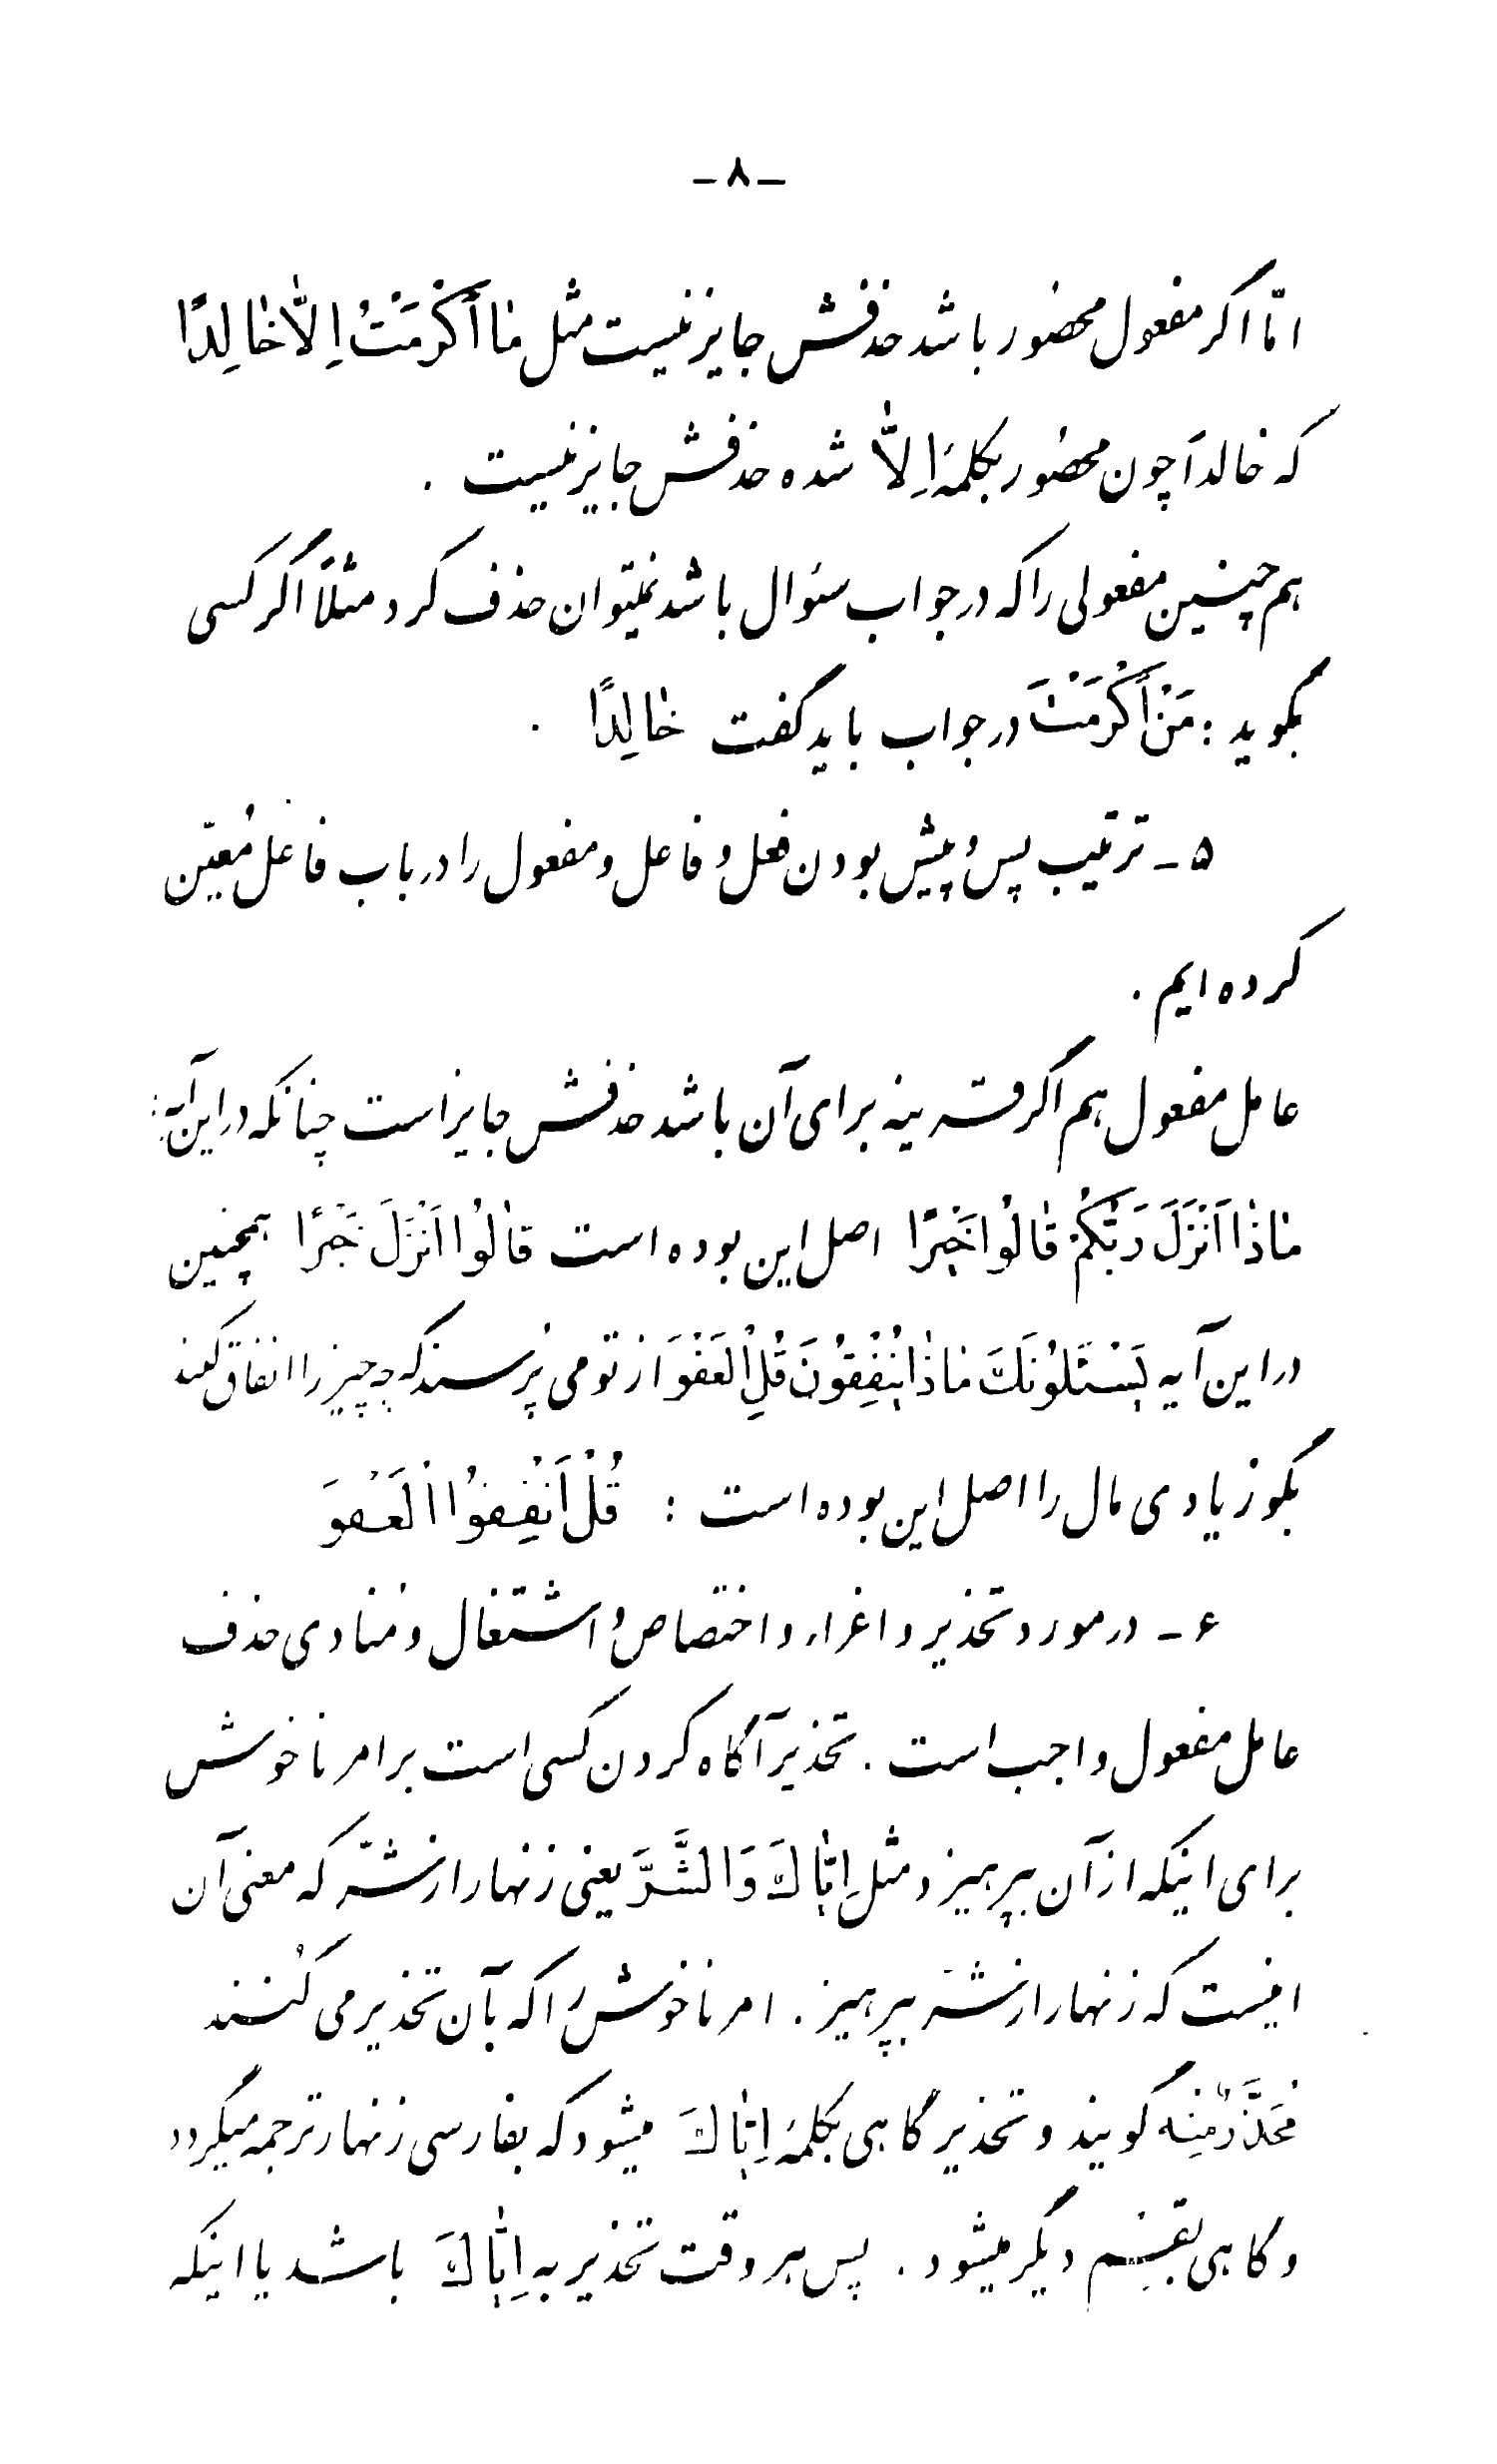 -۸-
امّا اگر مفعول محصُور باشد حذفش جایز نیست مثل مٰا أَكْرَمْتُ اِلاّٰ خٰالِدًا
که خالداً چون محصُور بکلمهٔ اِلاّٰ شده حذفش جایز نیست .
هم چنین مفعولی را که در جواب سئوال باشد نمیتوان حذف کرد مثلاً اگر کسی
بگوید : مَنْ أَكْرَمْتَ در جواب باید گفت خٰالِدًا .
۵ - ترتیب پس و پیش بودن فعل و فاعل و مفعول را در باب فاعل مُعیّن
کرده ایم .
عامل مفعول هم اگر قرینه برای آن باشد حذفش جایز است چنانکه در این آیه :
مٰاذٰا اَنْزَلَ رَبُّكُمْ قٰالُوا خَيْرًا اصل این بوده است قٰالُوا اَنْزَلَ خَيْرًا همچنین
در این آیه يَسْئَلُونَكَ مٰاذٰا يُنْفِقُونَ قُلِ الْعَفْوَ از تو می پُرسند که چه چیز را انفاق کنند
بگو زیادی مال را اصل این بوده است : قُلْ اَنْفِقُوا الْعَفْوَ
۶ - در مورد تحذیر و اغراء و اختصاص و اشتغال و منادی حذف
عامل مفعول واجب است . تحذیر آگاه کردن کسی است بر امر ناخوش
برای اینکه از آن بپرهیزد مثل اِيّٰاكَ وَ الشَّرَّ یعنی زنهار از شرّ که معنی آن
اینست که زنهار از شرّ بپرهیز . امر ناخوش را که بآن تحذیر می کُنند
مُحَذَّرٌ مِنْه گویند و تحذیر گاهی بکلمهٔ اِيّٰاكَ میشود که بفارسی زنهار ترجمه میگردد
و گاهی بقسم دیگر میشود . پس هر وقت تحذیر به اِيّٰاكَ باشد یا اینکه